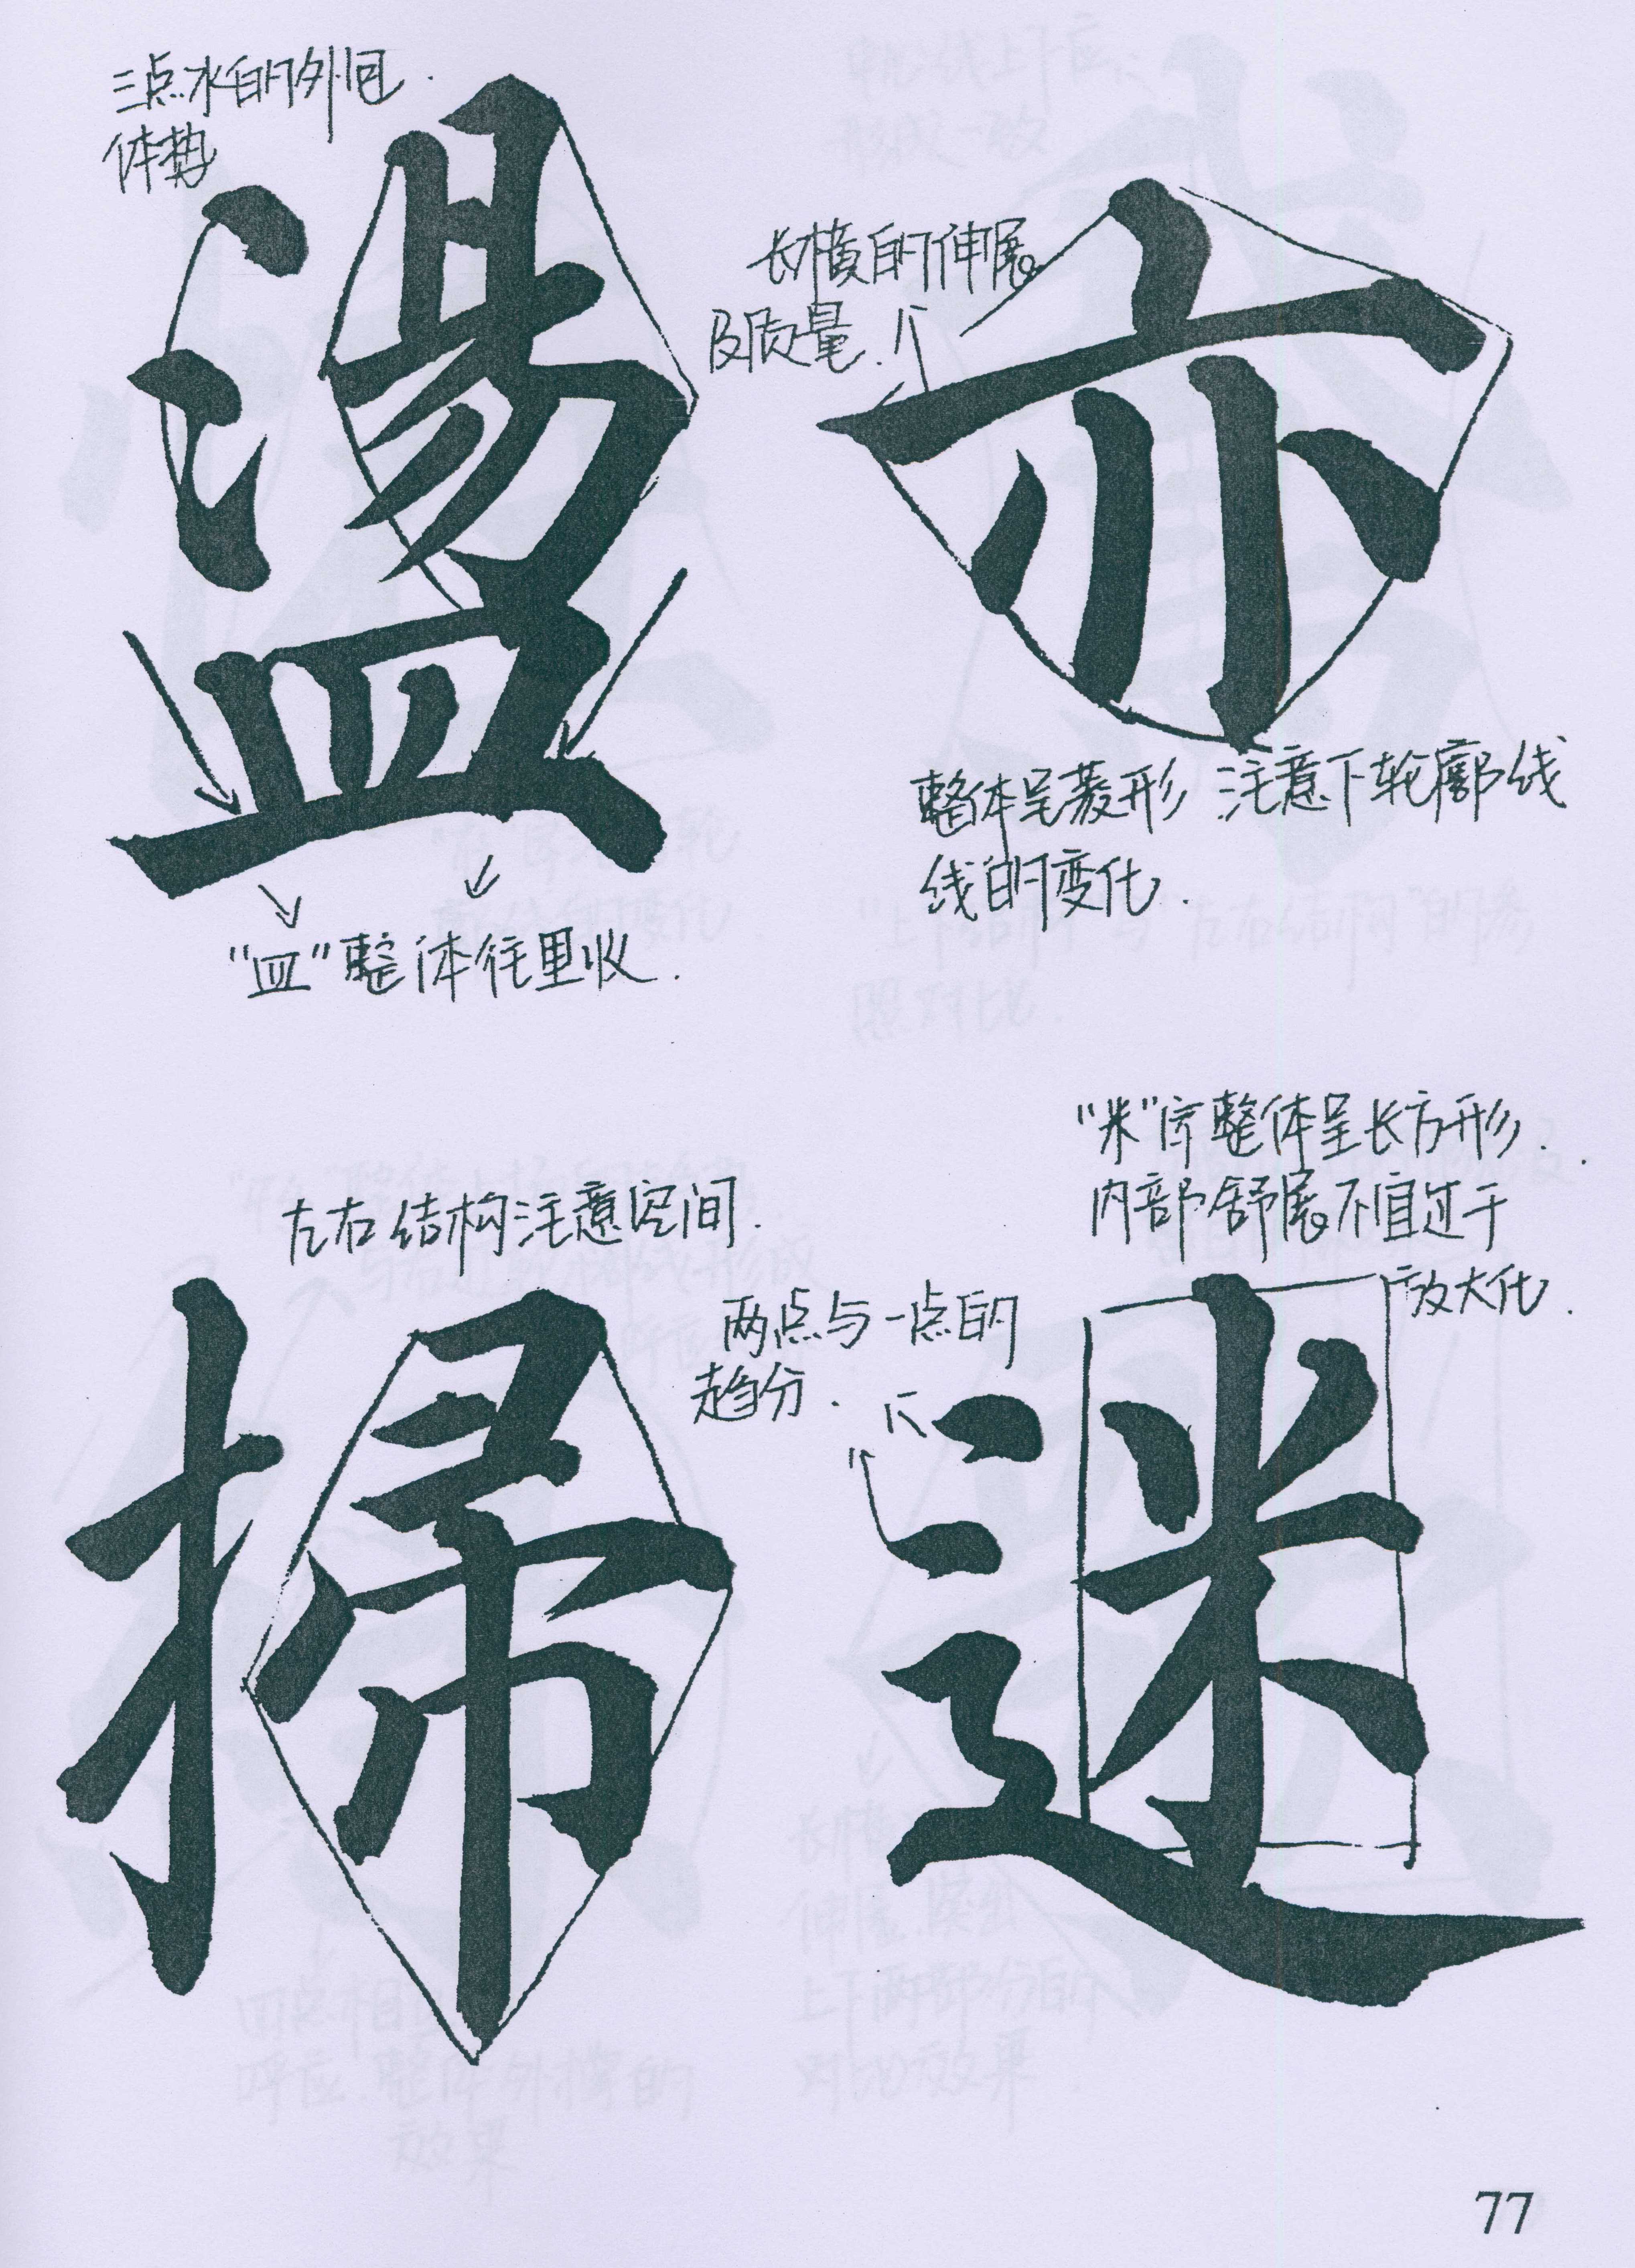 三点水的外包
体势
盪
长横的伸展
及质量.
亦
"皿"整体往里收.
整体呈菱形 注意下轮廓线
线的变化.
左右结构注意空间.
掃
"米"字整体呈长方形.
内部舒展不宜过于
放大化.
两点与一点的
趋分.
迷
77